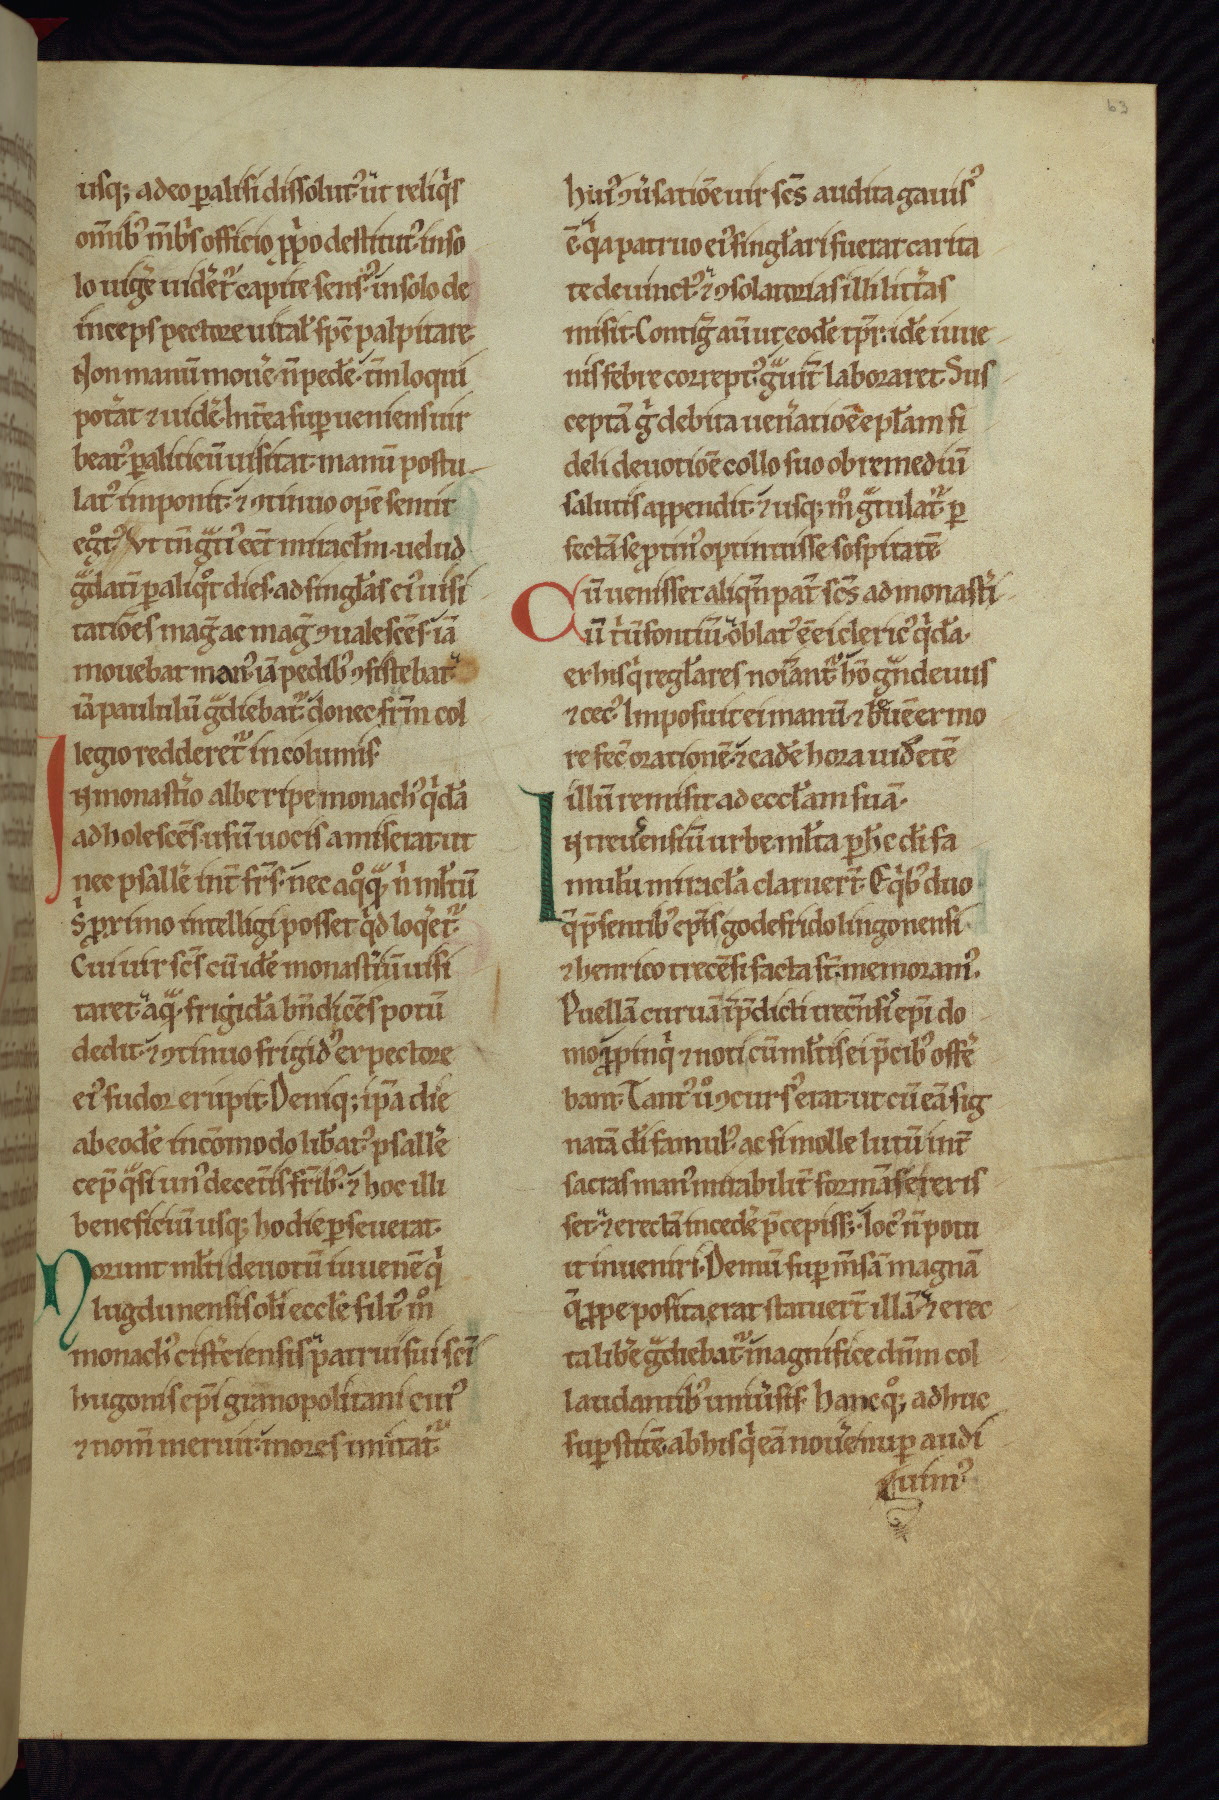 63
usq; adeo ꝑalisi dissolut᾿ ut reliq͛s
om̅ib᾿ m̅bris officio ꝓp̲o destitut᾿ inso
lo uige͛ uide͛t᷑ capite sens᾿ in solo de
inceps pectore uital̅ spē palpitare.
Non manū moue͛ n̅ pede̅ t̅m loqui
pot͛at ⁊ uide͛. Int͛ea suꝑueniens uir
beat᾿ ꝑaliticū uisitat. manū postu
lat᾿ imponit. ⁊ ꝯtinuo opē sentit
eg͛ot᾿. Vt t̅n gͣti᾿ eēt miracl̅m. uelud
gͣdatī ꝑ aliqͦt dies. ad singl̅as ei᾿ uisi
tatiōes mag̅ ac mag̅ ꝯualescēs. iā
mouebat man᾿. iā pedib᾿ ꝯsistebat.
iā paululū gͣdiebat᷑. donec fr̅m col
legio redderet᷑ incolumis.
In monast͛io albe ripe monach᾿ qͥdā
adholescēs. usū uocis amiserat. ut
nec psalle͛ int͛ fr̅s. nec a qͦqͣ, n̅ ml̅tū
sͥ ꝓximo intelligi posset qͥd loq͛et᷑.
Cui uir sc̅s cū idē monast͛iū uisi
taret. aqͣ frigidā bn̅dicēs potū
dedit. ⁊ ꝯtinuo frigid᾿ ex pectore
ei᾿ sudor erupit. Deniq; ip̅a die
ab eodē incōmodo lib͛at᾿ psalle͛
cep̅ qͣsi un᾿ de cet͛is fr̅ib᾿. ⁊ hoc illi
beneficiū usq; hodie ꝑseuerat.
Norunt ml̅ti deuotū iuuenē qͥ
lugdunensis oli̅ eccl̅e fili᾿. m̊
monach᾿ cist͛ciensis patrui sui sc̅i
hugonis ep̅i gͣnopolitani cui᾿
⁊ nom̅ meruit. mores imitat᷑.
hui᾿ ꝯu͛satiōe uir sc̅s audita gauis᾿
ē. qͥa patruo ei᾿ singl̅ari fuerat carita
te deuinct᾿. ⁊ ꝯsolatorias illi litt͛as
misit. Contig̅ au̅ ut eodē tp̅r. idē iuue
nis febre corrept᾿ gͣuit͛ laboraret. Sus
ceptā gͦ debita uen͛atiōe epl̅am fi
deli deuotiōe collo suo ob remediū
salutis appendit. ⁊ usq; m̊ gͣtulat᷑ ꝑ
fectā se ꝓtin᾿ optinuisse sospitatē.
Cū uenisset aliqn̅ pat͛ sc̅s ad monast͛i
ū t͛ū fontiū. oblat᾿ ē ei cleric᾿ qͥdā.
ex his qͥ reglares noīant᷑. hō gͣndeuus
⁊ cec᾿. Imposuit ei manū. ⁊ breuē ex mo
re fec̅ orationē. ⁊ eadē hora uidētē
illū remisit ad eccl̅am suā.
In treuensiū urbe. ml̅ta ꝑ h̅c di̅ fa
mulu̅ miracl̅a claruer̅t. E qͥb᾿ duo
q̄ p̅sentib᾿ ep̅is godefrido lingonensi.
⁊ henrico trecēsi facta st̅. memoram᾿.
Puellā curuā in p̅dicti trecēsis ep̅i do
mo ꝓpinqͥ ⁊ noti cū ml̅tis ei p̅cib᾿ offe͛
bant. Tant᾿ u̅o ꝯcurs᾿ erat. ut cū eā sig
natā di̅ famul᾿. ac si molle lutū int͛
sacras man᾿ mirabilit͛ formā se texeris
set. ⁊ erectā incede͛ p̅cepiss;. loc᾿ n̅ potu
it inueniri. Demū suꝑ m̅sā magnā
q̄ ꝓpe posita erat statuer̅t illā. ⁊ erec
ta libe͛ gͣdiebat᷑. magnifice dn̅m col
laudantib᾿ uniu͛sis. Hancqͦ; adhuc
suꝑstitē. ab his qͥ eā noue͛. nuꝑ audi
uim᾿